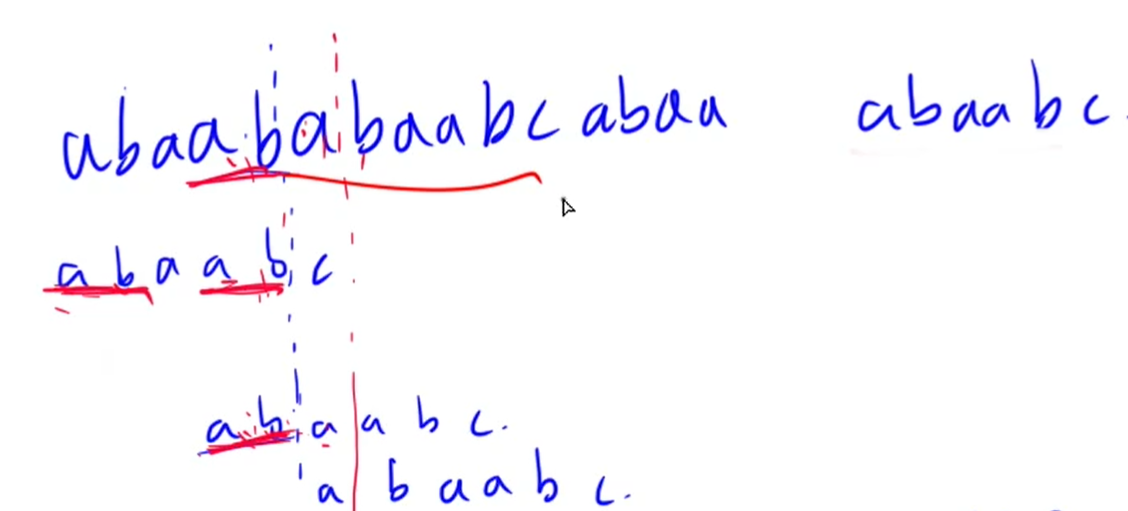 abaababaabcabaa abaabc.
abaabc
abaabc.
abaabc.